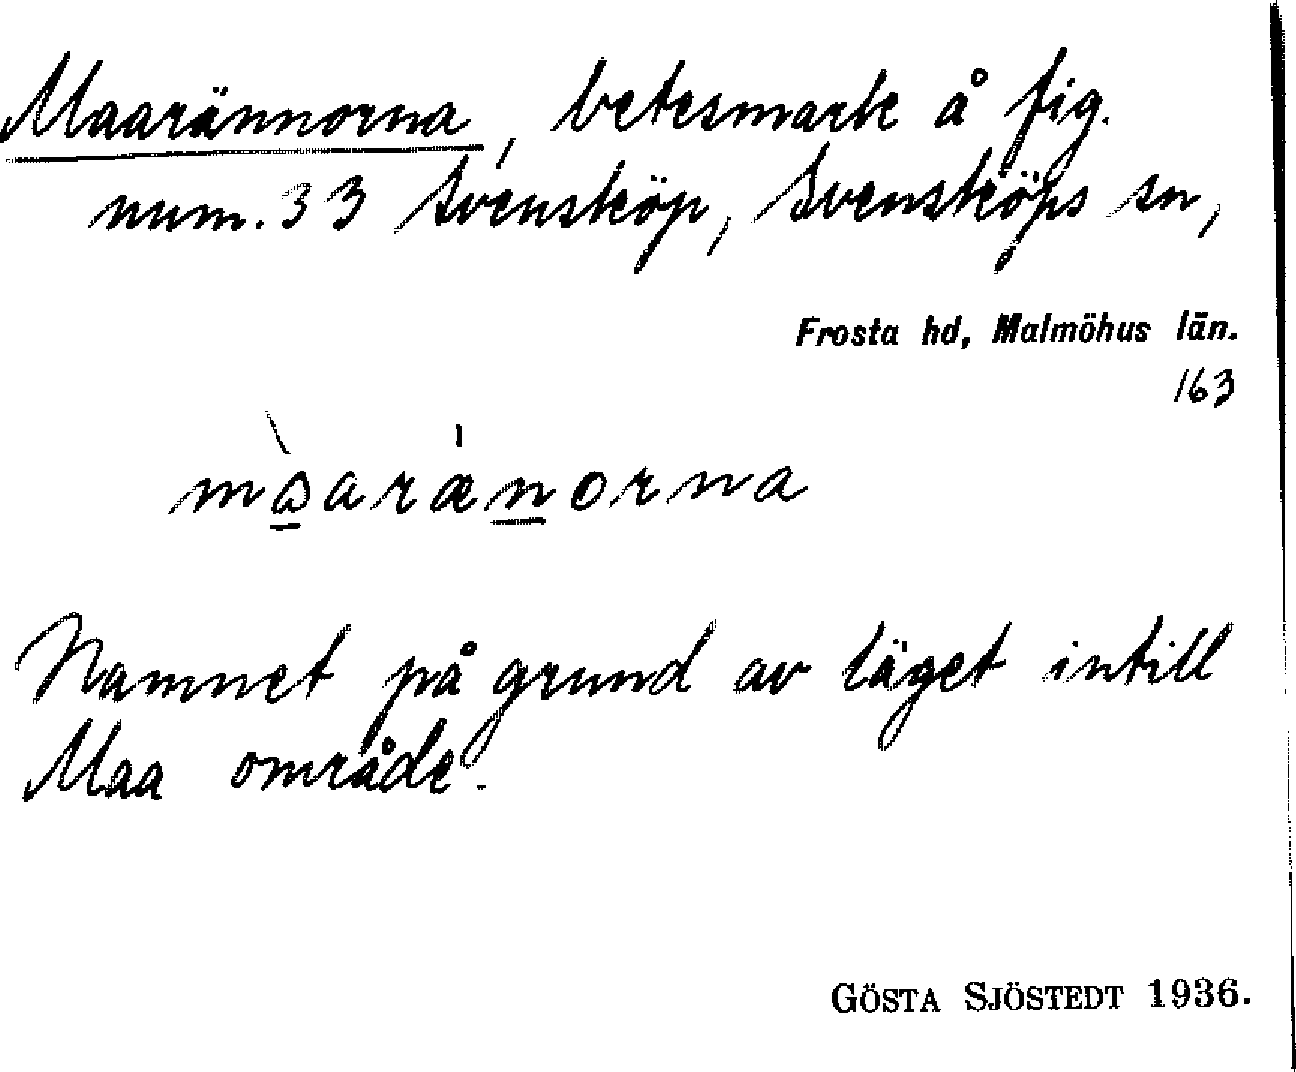 Maarännorna, betesmark å fig.
num. 33 Svensköp, Svensköps sn,
Frosta hd, Malmöhus län.
163
màarǽnorna
Namnet på grund av läget intill
Maa område.
GÖSTA SJÖSTEDT 1936.